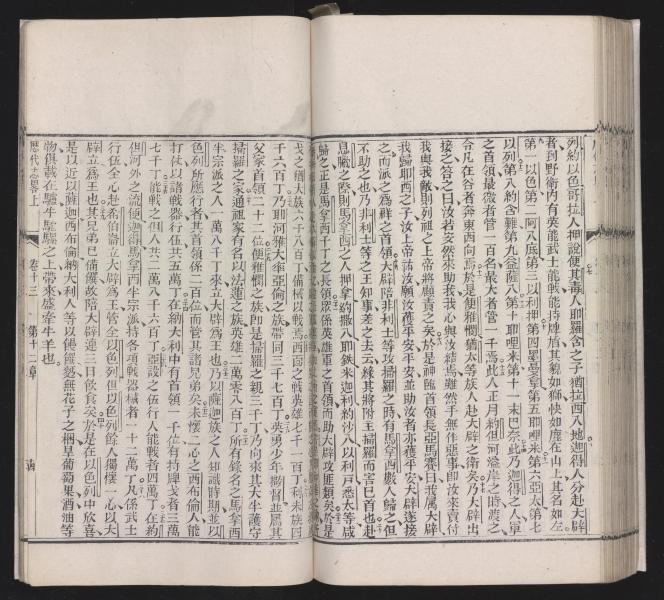 列約以色哥拉人押說便其毒人耶羅含之子猶拉西八地迦得人人分赴大辟
者到野衛內有英能武士能戰能持牌盾其貌如獅快如鹿在山上其名如左
第一以色第二阿八底第三以利押第四罗曼拿第五耶哩米第六亞太第七
以列第八約含難第九益薩八第十耶哩米第十一末巴奈此乃迦得之人軍
之首領最微者管一百名最大者管一千焉此人正月約但河溢岸之時濟之
令凡在谷者奔東西向焉於是便雅憫猶太等族人赴大辟之衛矣乃大辟出
接之答之曰汝若安然來助我我心與汝結焉雖然手無作惡事卽汝來賣付
我與我敵則列祖之上帝將顧責之矣於是神臨首領長亞馬賽曰我屬大辟
我歸耶西之子汝上帝祐汝願汝獲平安平安並助汝者亦獲平安大辟遂接
之而派之爲群之首領大辟陪非利士等攻掃羅之時有馬拿西數人歸之但
不助之也乃非利士等之王知事差之去云緣其將附主掃羅而害巳首也赴
息臘之際則馬拿西之人押拿約撒八耶鉄米迦利約沙八以利戸悉太等咸
歸之正是馬拿西千丁之長領眾係英雄軍之首領而助大辟攻匪類矣於是
戈之猶大族六千八百丁備械以戰焉西面之戰英雄七千一百丁利未族四
千六百丁乃耶河雅大率亞倫之族帶同三千七百丁英勇少年撒督並厥其
父家首領二十二位便雅憫之族卽是掃羅之親三千丁乃向來其大半護守
掃羅之家通祖家有名以法蓮之族英雄二萬零八百丁所有錄名之馬拿西
半宗派之人一萬八千丁來立大辟爲王也乃以薩迦族之人知識時期並以
色列所應行者其首領係二百位而管其諸兄弟矣未懷二心之西布倫人能
打仗以諸戰器行伍共五萬丁在納大利中有首領一千位有持牌戈者三萬
七千丁能戰之但人共二萬八千六百丁亞設之伍行人能戰者四萬丁在約
但河外之流便迦得馬拿西半宗派持各項戰器械者一十二萬丁凡係武士
行伍全心赴希伯崙立大辟爲王管全以色列但以色列餘人獨懷一心以大
辟立爲王也其兄弟已備饌故陪大辟連三日飲食矣於是在以色列中欣喜
是以近以薩迦西布倫納大利人等以饌麪無花子之梱旱葡萄果酒油等
物俱載在驢牛駝騾之上帶來盛牽牛羊也
歷代志畧上 卷十三 第十二章 十四